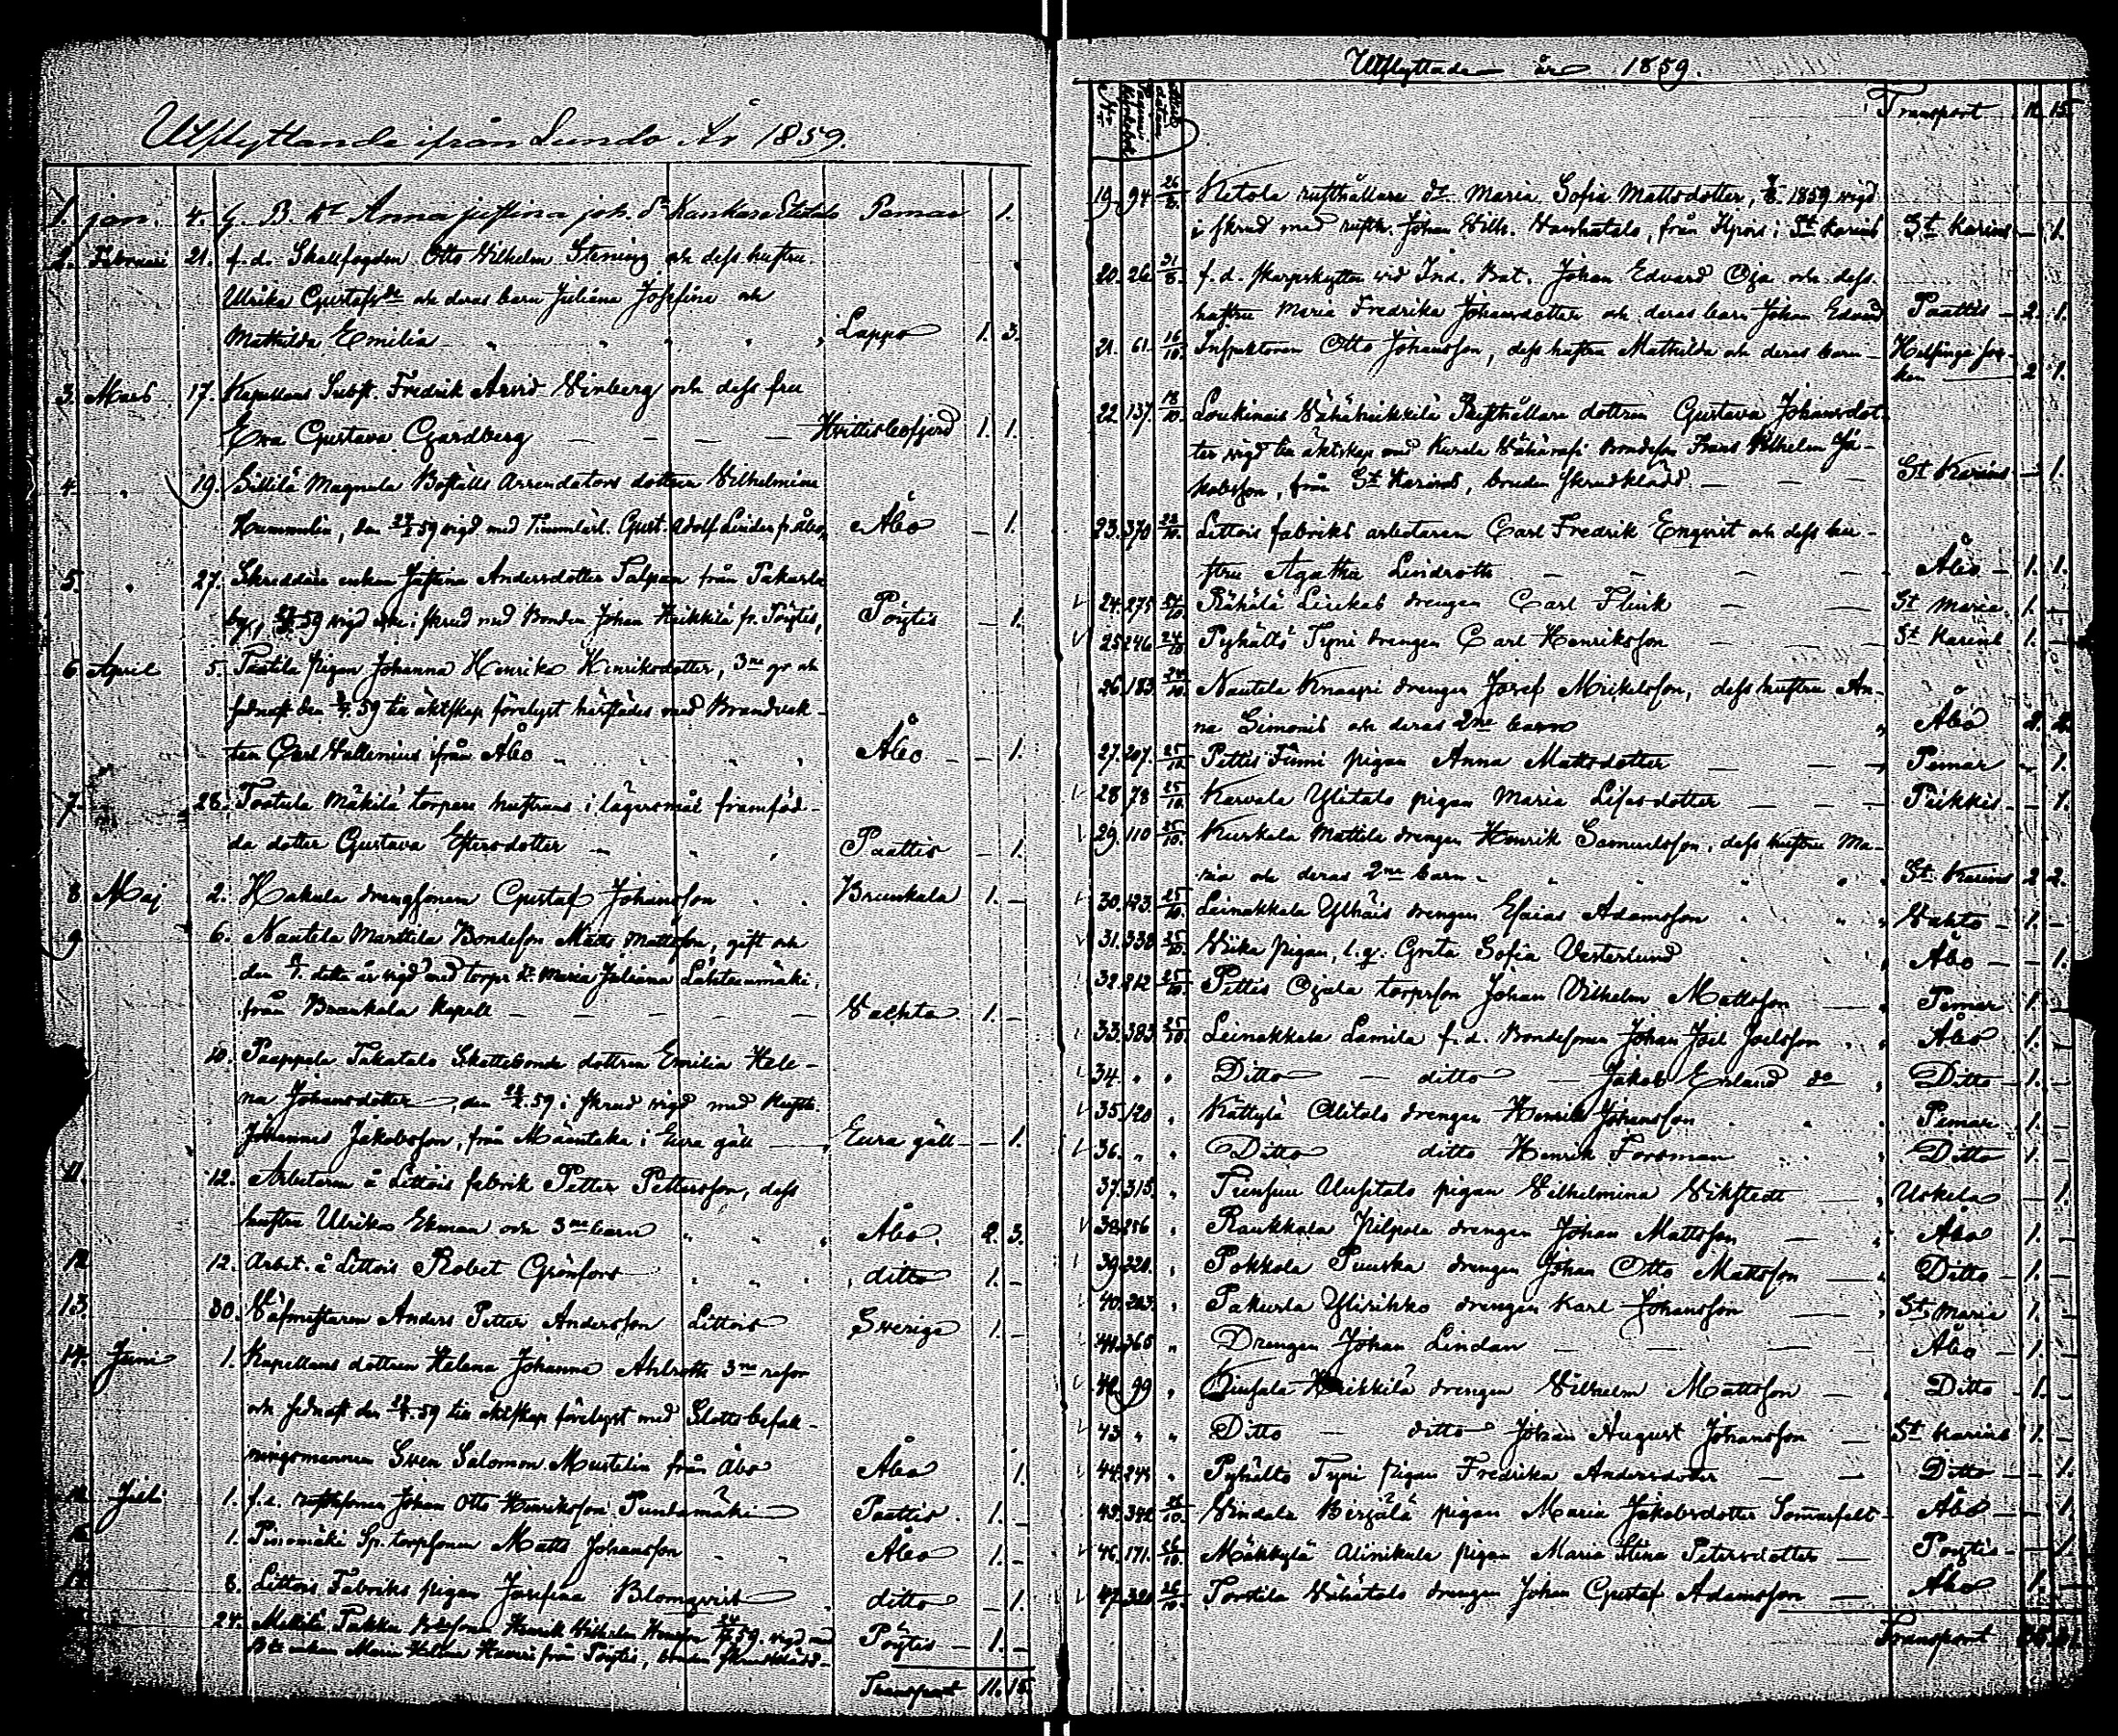 Utflyttande ifrån Lundo År 1859.
1. jan. 4. G. B. dr Anna Justina Joh. dr Kankare Pemar 1.
2. Februari 21. f.d. Skallfogden Otto Wilhelm Stening och dess hustru
Ulrika Gustafsdr och deras barn Juliana Josefina och
Mathilda Emilia Lappo 1. 3.
3. Mars 17. Kapellans Subst. Fredrik Arvid Winberg och dess fru
Eva Gustava Gardberg Hvittisbofjerd 1. 1.
4. " 19. Sillilä Magnula Boställs Arrendators dottren Wilhelmina
Hummelin, den 59 vigd med Gust. Adolf Linder fr. Åbo, Åbo — 1.
5. " 27. Skreddare enkan Justina Andersdotter Salpan från Pakurla
by, 59 vigd i skrud med Bonden Johan Heikkilä fr. Pöytis, Pöytis — 1.
6 April 5. Paatila pigan Johanna Henrika Henriksdotter, 3ne gr och
sednast den 59 till äktskap förelyst härstädes med Brandvak-
ten Carl Wallenius ifrån Åbo Åbo — 1.
7. 28. Tortula Mäkilä torpare hustruns i lägersmål framföd-
da dotter Gustava Estersdotter Paattis — 1.
8 Maj 2. Hakula drengsonen Gustaf Johansson Brunkala 1. —
9 6. Nautela Marttila Bondeson Matts Mattsson, gift och
den detta år vigd med torpr dr Maria Juliana Lähteenmäki,
från Brunkala Kapell Vachta 1. —
10. Paappala Takatalo Skattebonde dottren Emilia Hele-
na Johansdotter, den 59 i skrud vigd med
Johannes Jakobsson, från Mäentaka i Eura gäll Eura gäll — 1.
11. 12. Arbetaren å Littois fabrik Petter Pettersson, dess
hustru Ulrika Ekman och 3ne barn Åbo. 2. 3.
12 12. Arbet. å Littois Robet Grönfors ditto 1. —
13. 30. Väfmestaren Anders Petter Andersson Littois Sverige 1. —
14. Juni 1. Kapellans dottren Helena Johanna Ahlroth 3ne resor
och sednast den 59 till äktskap förelyst med Slottsbefall-
ningsmannen Sven Salomon Mustelin från Åbo Åbo 1.
Juli 1. f.d. Johan Otto Henriksson Pundamäki Paattis. 1. —
16. 1. Pisiomäki Sp. torpsonen Matts Johansson Åbo 1. —
17 8. Littois Fabriks pigan Josefina Blomqvist ditto — 1.
24. Mäkilä Pakka Bdesonen Henrik Wilhelm 59. vigd med
Bde enkan Maria Helena från Pöytis, bruden skrudklädd Pöytis 1. —
Transport 11. 15.
Utflyttade år 1859.
Transport 11. 15.
19. 94 Ketola rusthållare dr Maria Sofia Mattsdotter, 1859 vigd
i skrud med rusth. Johan Wilh. Vanhatalo, från i St Karins St Karins — 1.
20. 26 f.d. skarpskytten vid Ind. Bat. Johan Edvard Oja och dess
hustru Maria Fredrika Johansdotter och deras barn Johan Edvard Paattis — 2. 1.
21. 61 16/10. Inspektoren Otto Johansson, dess hustru Mathilda och deras barn Helsinge soc-
ken 2 1.
22 137. 18/10. Loukinais Vähäheikkilä Rusthållare dottren Gustava Johansdot-
ter vigd till äktskap med Kurala Bondeson Frans Wilhelm Ja-
kobsson, från St Karins, bruden skrudklädd St Karins — 1.
23. 370 Littois fabriks arbetaren Carl Fredrik Enqvist och dess hu-
stru Agatha Lindroth Åbo 1. 1.
24. 275 24/10 Rähälä Liukas drengen Carl Flink St Maria. 1. —
25 246 24/10 Pyhältö Tyni drengen Carl Henriksson St Karins 1. —
26. 183. 24/10. Nautela Knaapi drengen Josef Mickelsson, dess hustru An-
na Simonis och deras 2ne barn Åbo 2. 2.
27. 207. 25/10 Pettis Fumi pigan Anna Mattsdotter Pemar — 1.
28 78 25/10. Karvala Ylitalo pigan Maria Lisasdotter Piikkis — 1.
29. 110 25/10. Kurkala Mattila drengen Henrik Samuelsson, dess hustru Ma-
ria och deras 2ne barn St Karins 2 2.
30. 123. 25/10. Leinakkala Ylhäis drengen Esaias Adamsson Vahto 1. —
31. 338 25/10. Viika pigan, l.q. Greta Sofia Vesterlund Åbo — 1.
32. 212 25/10. Pettis Ojala torprson Johan Wilhelm Mattsson Pemar 1. —
33. 383. 25/10. Leinakkala Lamila f.d. Bondesonen Johan Joel Joelsson Åbo 1. —
34. " " Ditto — ditto — Jakob Erland do Ditto 1. —
35. 120 " Kättylä Alitalo drengen Henrik Johansson Pemar 1. —
36. " " Ditto ditto Henrik Forsman Ditto 1. —
37. 315. " Tunsuu Uusitalo pigan Wilhelmina Vikstedt Uskela — 1.
38. 256 " Raukkala Kilpola drengen Johan Mattsson Åbo 1. —
39. 320. " Pokkola Puuska drengen Johan Otto Mattsson Ditto 1. —
40. 283. " Pakurla Ylirihko drengen Karl Johansson St Maria 1. —
41. 365 " Drengen Johan Lindan Åbo 1. —
42. 99 " Heikkilä drengen Wilhelm Mattsson Ditto 1. —
43 " " Ditto — ditto Johan August Johansson St Karins 1. —
44. " Pyhältö Tyni pigan Fredrika Andersdotter Ditto — 1.
45. 342 Vindala Birjälä pigan Maria Jakobsdotter Somarfelt Åbo — 1.
46. 171. 26/10. Mäkkylä Alinikula pigan Maria Stina Petersdotter Pöytis — 1.
47. 320 26/10. Torstila Vähätalo drengen Johan Gustaf Adamsson Åbo 1. —
Transport